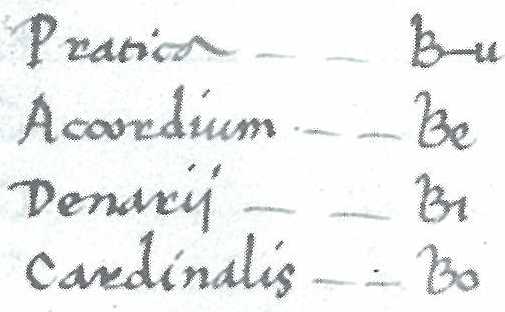 Pratica — — B—u
Acordium — — Be
Denarij — — B1
Cardinalis — — Bo